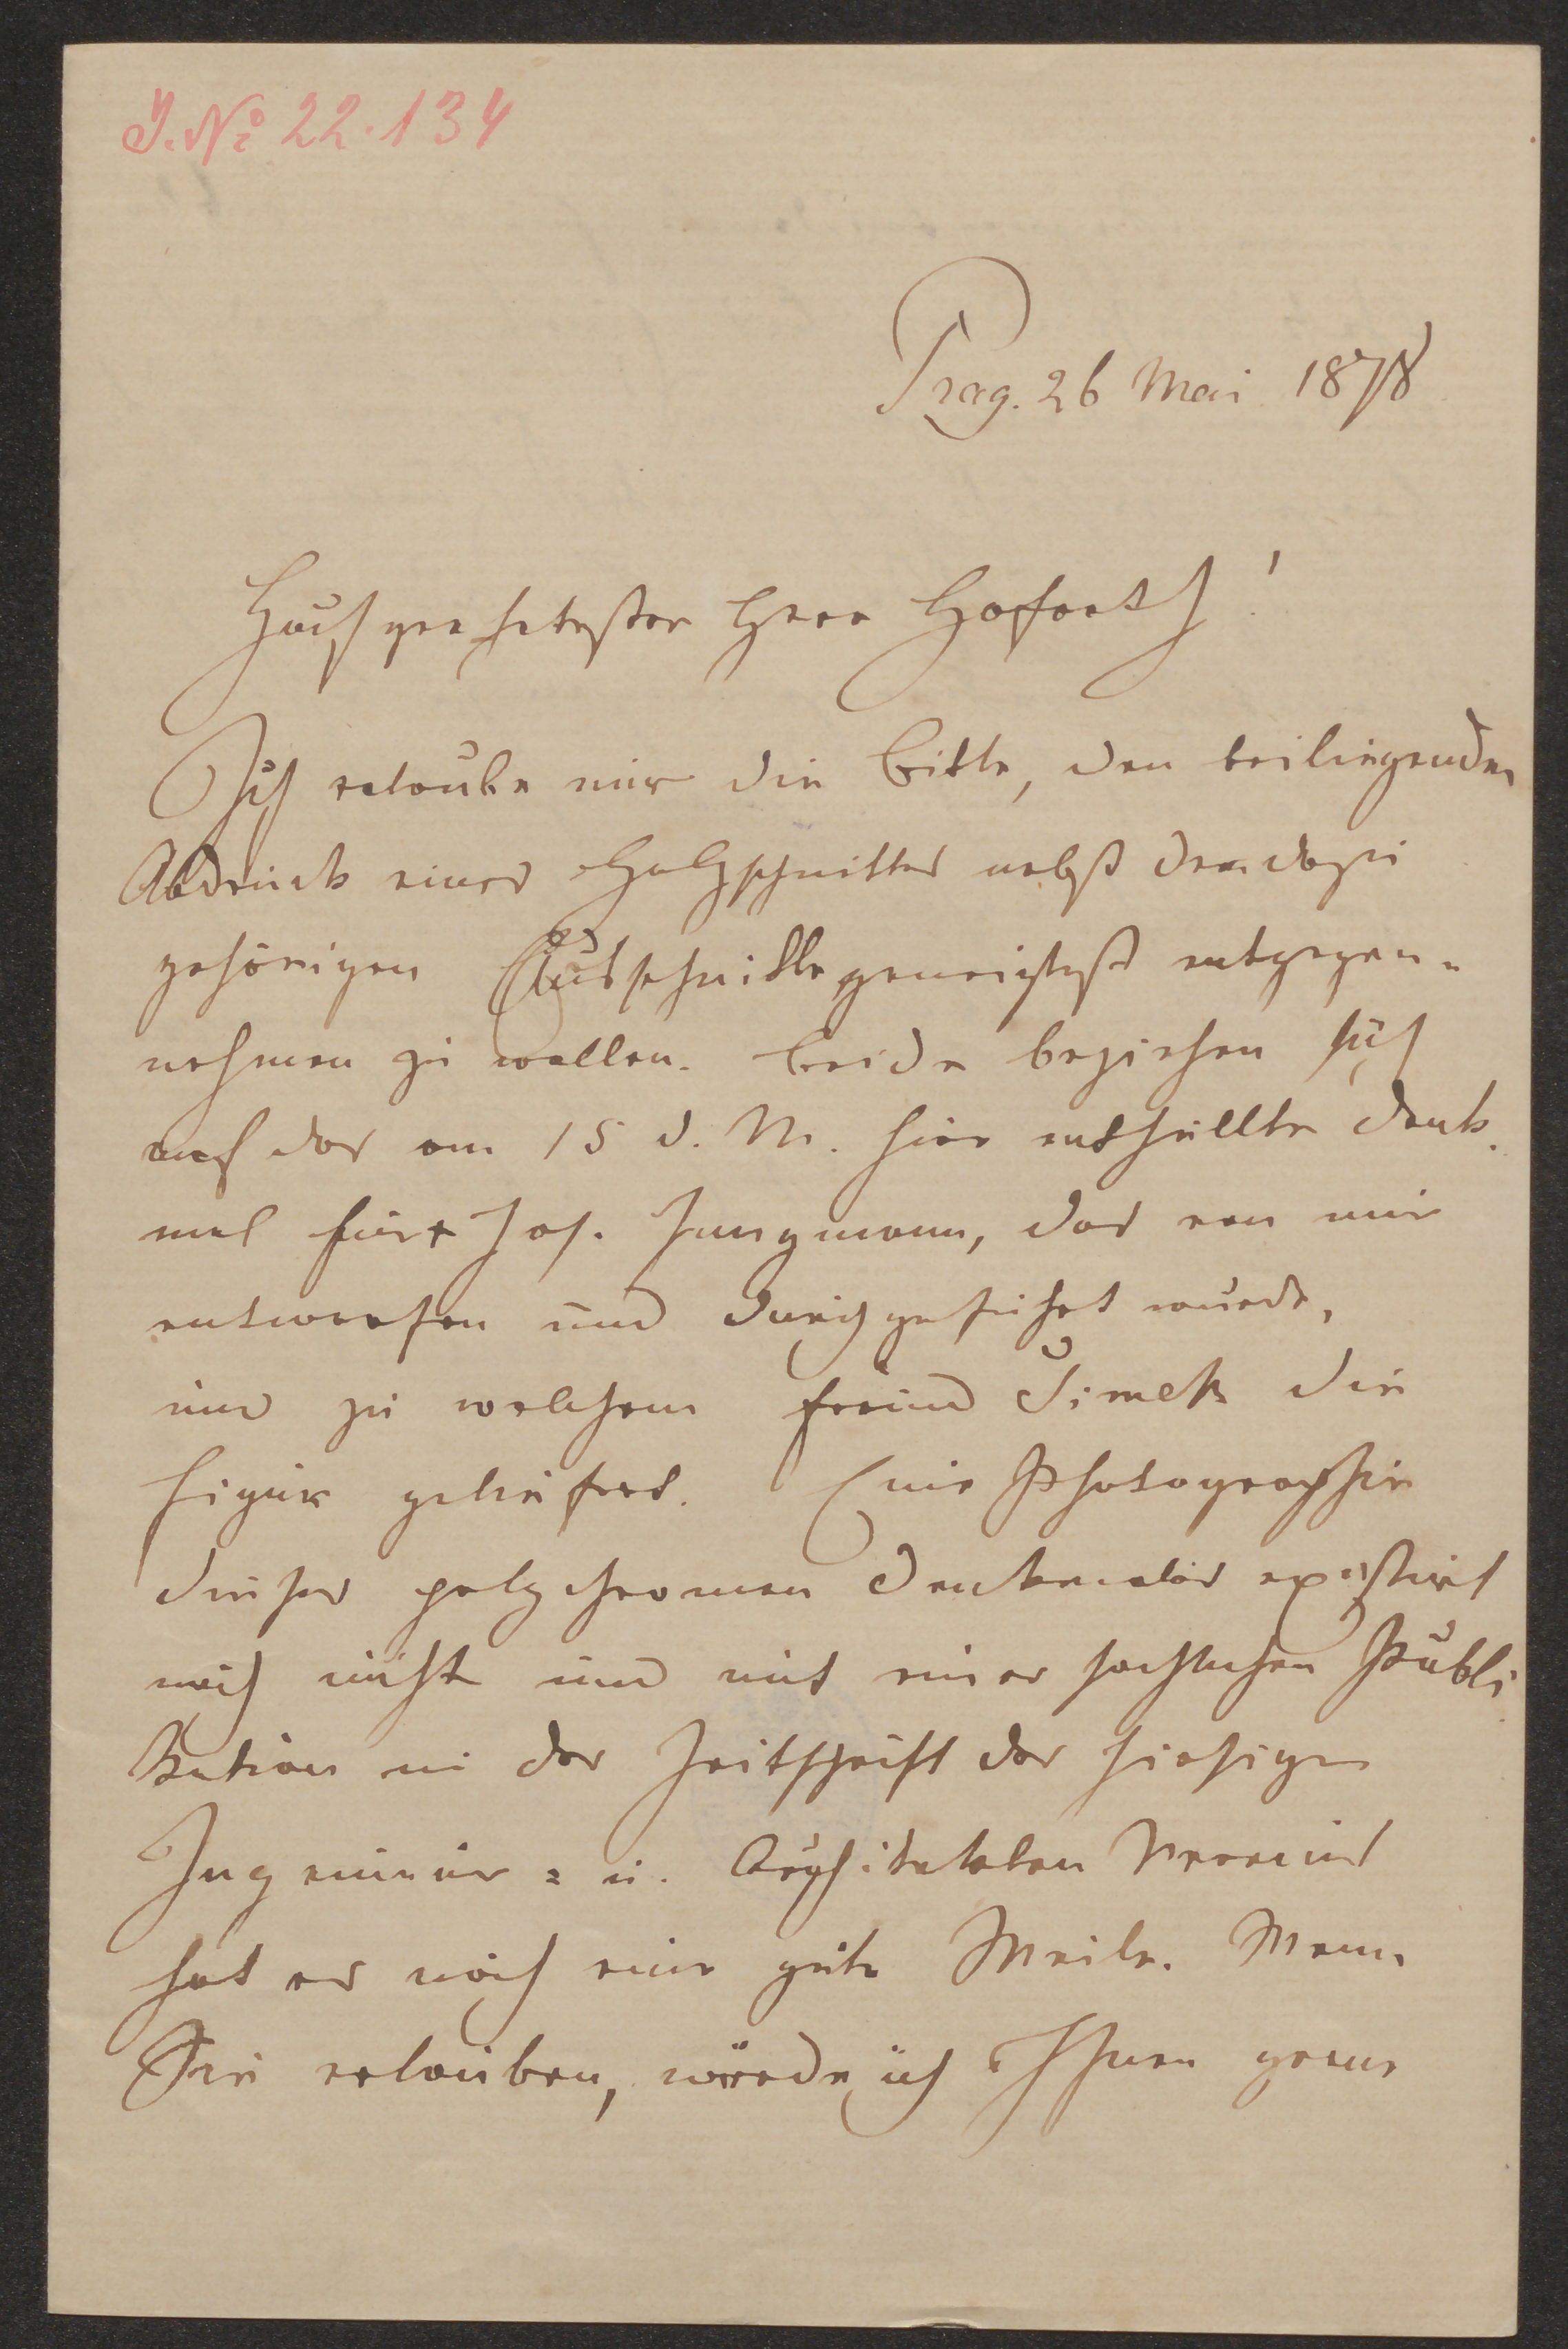 J. No 22.134
Prag. 26 Mai 1878
Hochgeehrtester Herr Hofrath!
Ich erlaube mir die Bitte, den beiliegenden
Abdruck eines Holzschnittes nebst dem dazu
gehörigen Ausschnitte geneigtest entgegen-
nehmen zu wollen. Beide beziehen sich
auf das am 15 d. M. hier enthüllte Denk-
mal für Jos. Jungmann, das von mir
entworfen und durchgeführt wurde,
und zu welchem Freund Šimek die
Figur geliefert. Eine Photographie
dieses polychromen Denkmales existirt
noch nicht und mit einer fachlichen Publi
kation in der Zeitschrift des hiesigen
Ingenieur= u. Architekten Vereins
hat es noch eine gute Weile. Wenn
Sie erlauben, würde ich Ihnen gerne